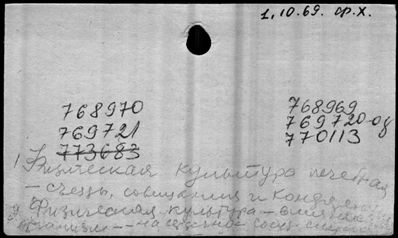 1.10.69. ф.х.
768970 768969
769721 769720-од
773683 770113
1) Физическая культура лечебная
- съезды, совещания и конференции
2) Физическая культура - влияние на
организм -- на сердечно-сосуд.